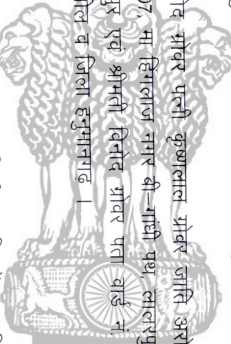 ोद ग्रोवर पत्नी कृष्णलाल ग्रोवर जाति अरो
07, मां हिंगलाज नगर बी-गांधी पथ, लालरप
पुर एवं श्रीमती विनोद ग्रोवर पता वार्ड नं
ील व जिला हनुमानगढ ।